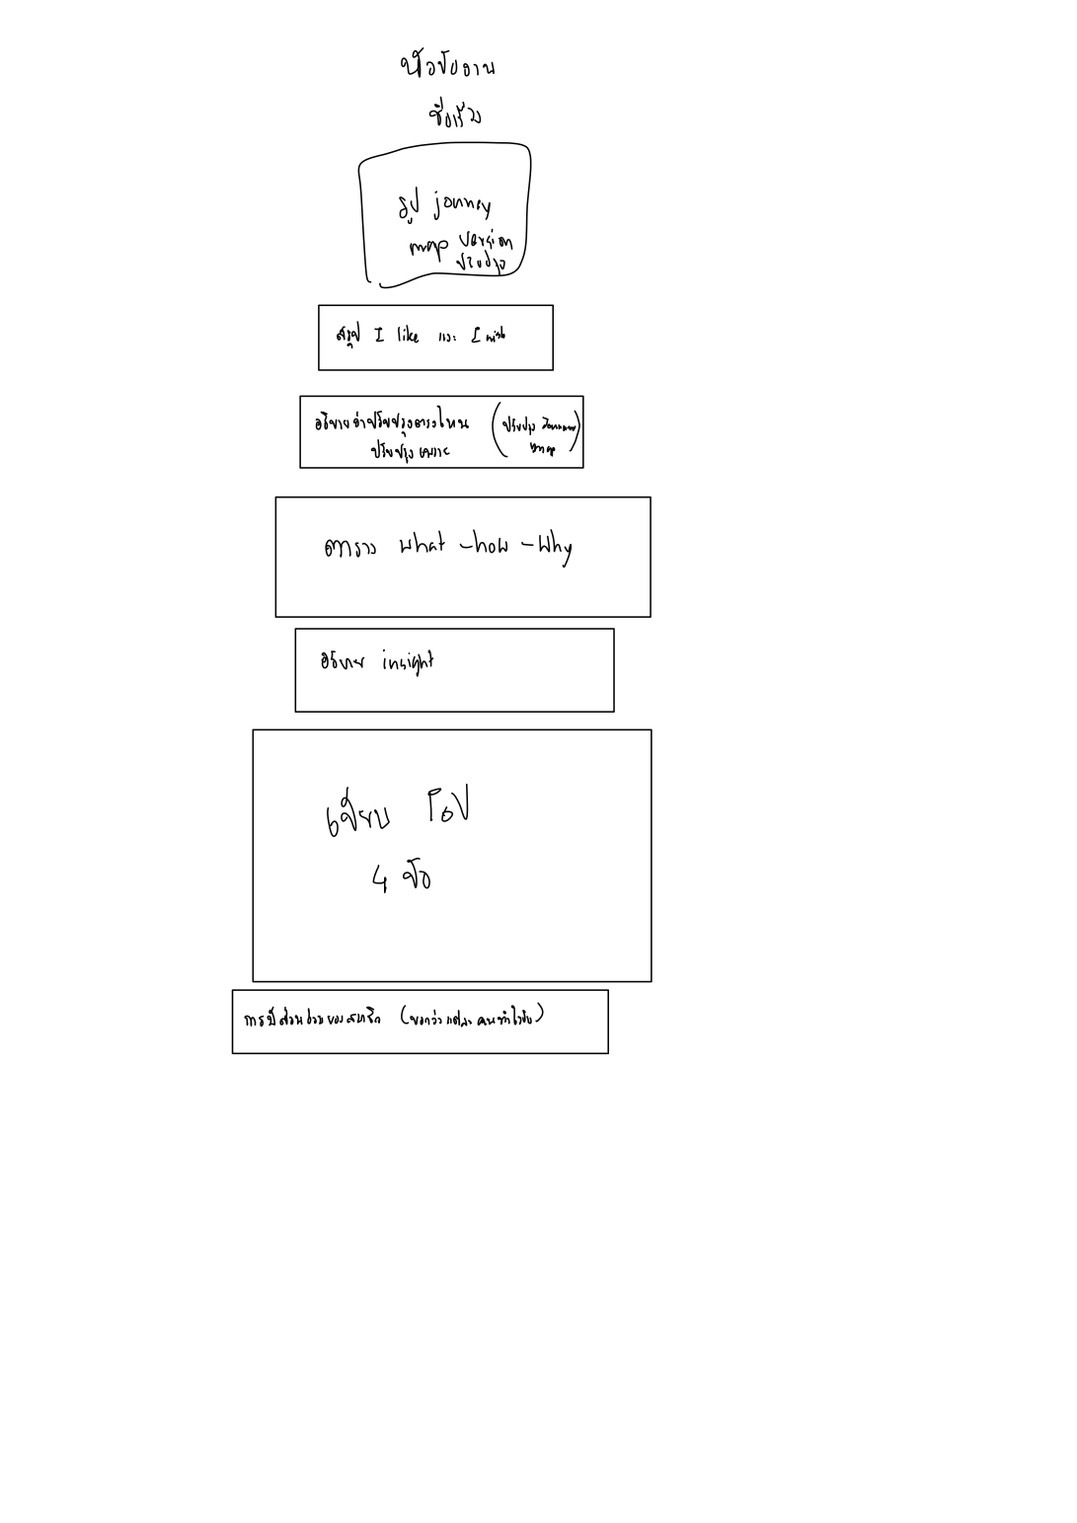 หัวข้องาน
ชื่อเรื่อง
รูป journey
map version
ปรับปรุง
สรุป I like และ I wish
อธิบายว่าปรับปรุงตรงไหน (ปรับปรุง Journey
ปรับปรุงเพราะ map)
ตาราง what - how - Why
อธิบาย insight
เขียน POV
4 ข้อ
การมีส่วนร่วมของสมาชิก (บอกว่าแต่ละคนทำไรบ้าง)